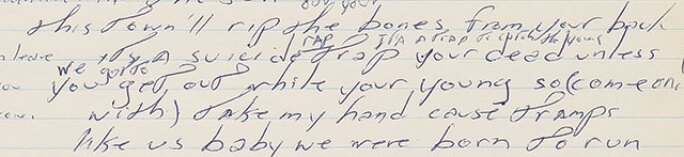 out your
this town'll rip the bones from your back
rap It's a trap to catch the young
its a suicide trap your dead unless
we gotta
you get out while your young so (come on
with) take my hand cause tramps
like us baby we were born to run